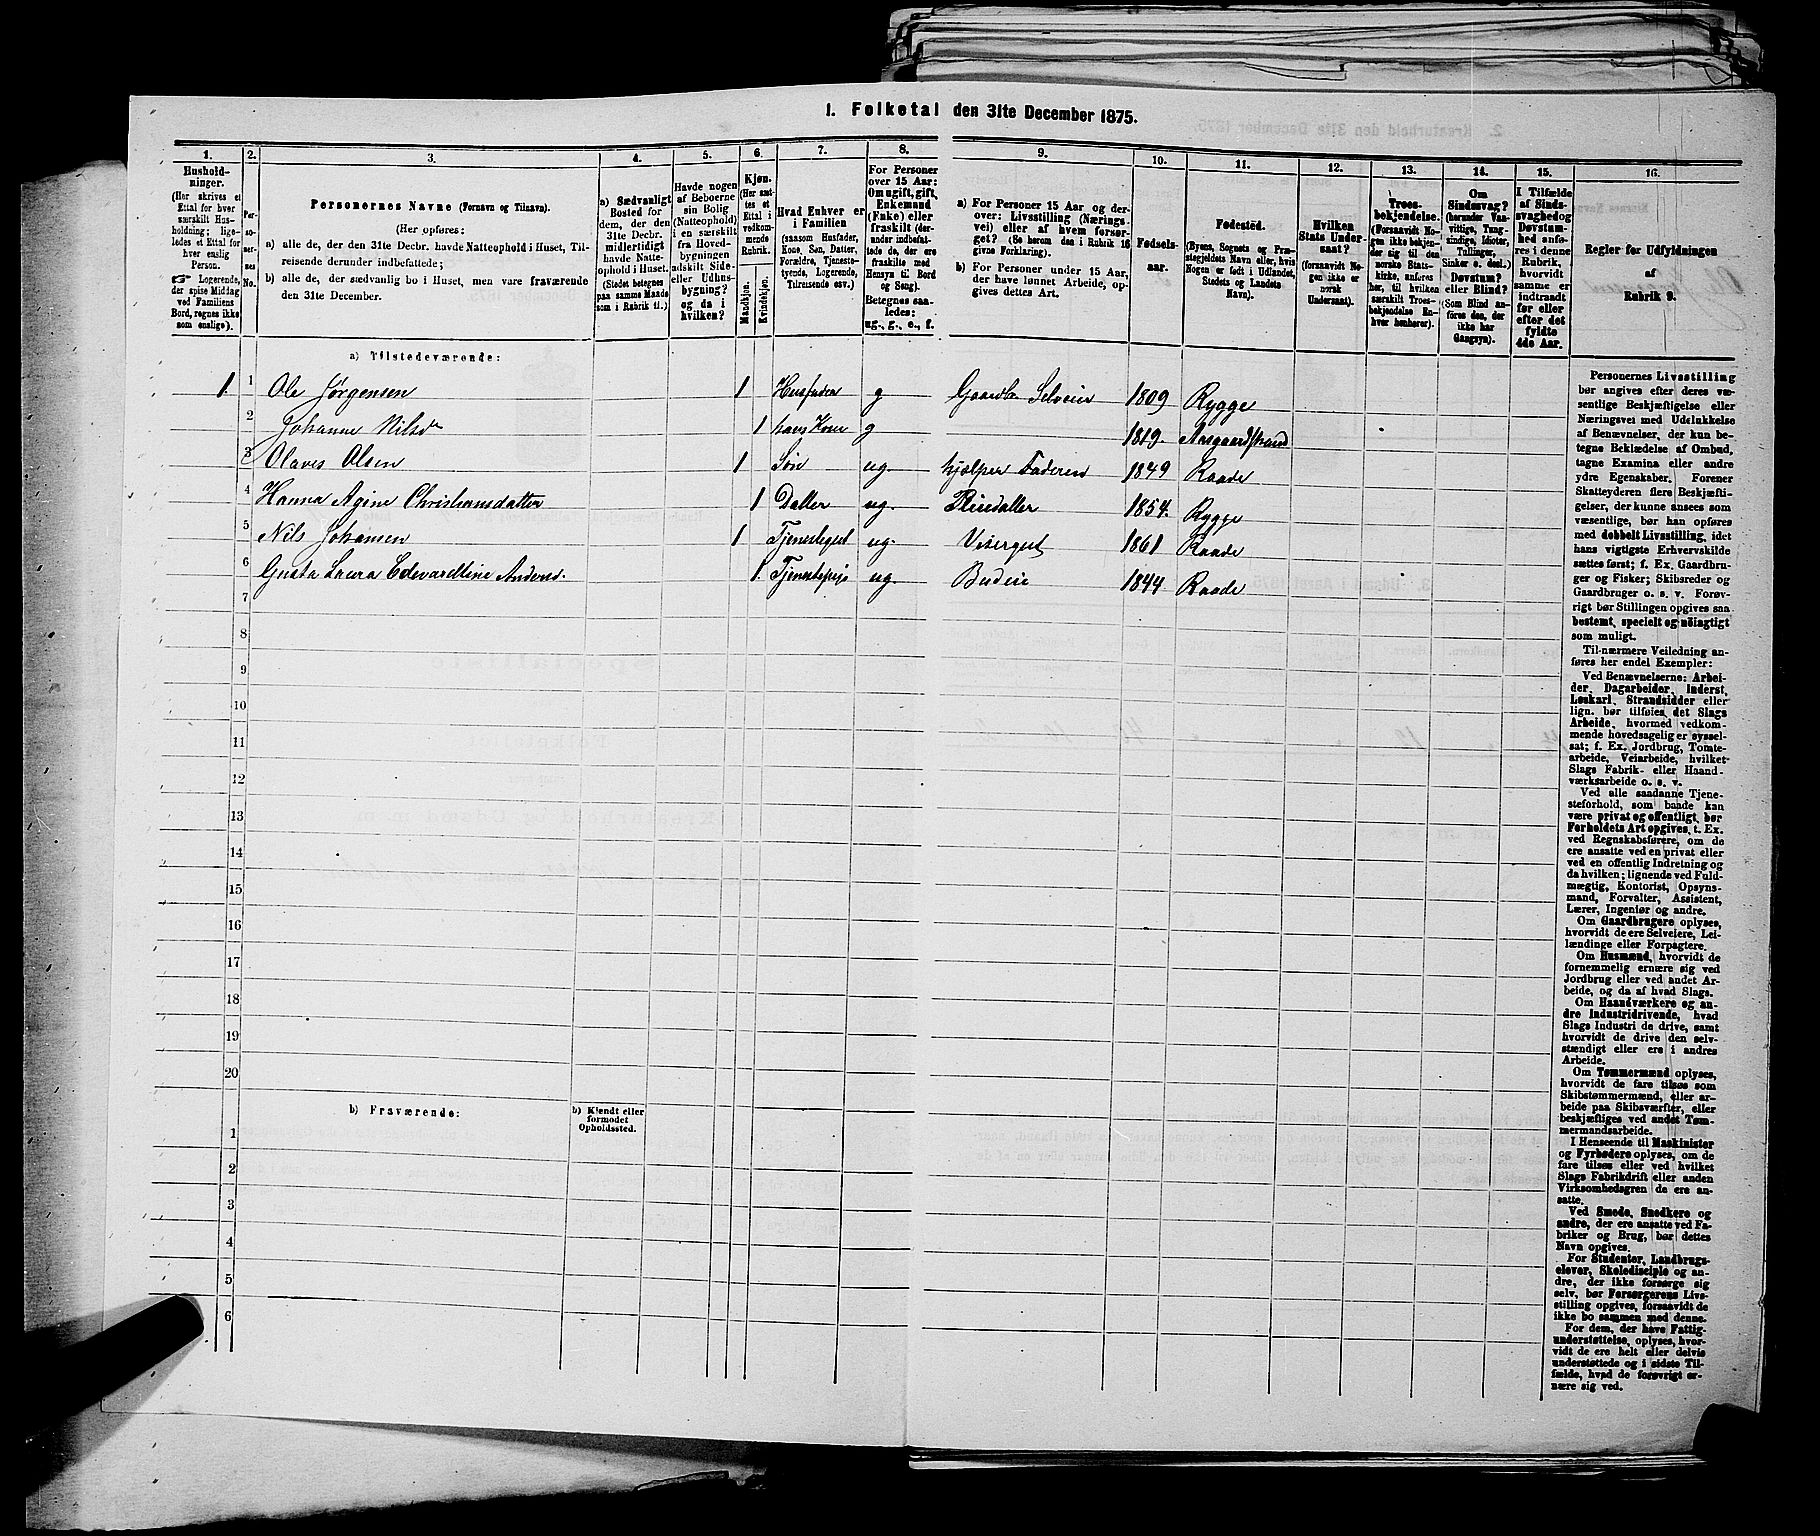 1. Folketal den 31te December 1875.
1. 2. 3. 4. 5. 6. 7. 8. 9. 10. 11. 12. 13. 14. 15. 16.
Hushold-
ninger.
(Her skrives et
Ettal for hver
særskilt Hus-
holdning; lige-
ledes et Ettal for
hver enslig
Person.
Logerende,
der spise Middag
ved Familiens
Bord, regnes ikke
som enslige).
Per-
so-
ner-
nes
No.
Personernes Navne (Fornavn og Tilnavn).
(Her opføres:
a) alle de, der den 31te Decbr. havde Natteophold i Huset, Til-
reisende derunder indbefattede;
b) alle de, der sædvanlig bo i Huset, men vare fraværende
den 31te December.
a) Sædvanligt
Bosted for
dem, der den
31te Decbr.
midlertidigt
havde Natte-
ophold i Huset.
(Stedet betegnes
paa samme Maade
som i Rubrik 11.)
Havde nogen
af Beboerne
sin Bolig
(Natteophold)
i en særskilt
fra Hoved-
bygningen
adskilt Side-
eller Udhus-
bygning?
og da i
hvilken?
Kjøn.
(Her sæt-
tes et
Ettal i
vedkom-
mende
Rubrik.
Mandkjøn.
Kvindekjøn.
Hvad Enhver er
i Familien
(saasom Husfader,
Kone, Søn, Datter,
Forældre, Tjeneste-
tyende, Logerende,
Tilreisende osv.)
For Personer
over 15 Aar:
Om ugift, gift,
Enkemand
(Enke) eller
fraskilt (der-
under indbefat-
tede de, der ere
fraskilte med
Hensyn til Bord
og Seng).
Betegnes saa-
ledes:
ug., g., e., f.
a) For Personer 15 Aar og der-
over: Livsstilling (Nærings-
vei) eller af hvem forsør-
get? (Se herom den i Rubrik 16
givne Forklaring).
b) For Personer under 15 Aar,
der have lønnet Arbeide, op-
gives dettes Art.
Fødsels-
aar.
Fødested.
(Byens, Sognets og Præ-
stegjeldets Navn eller, hvis
Nogen er født i Udlandet,
Stedets og Landets
Navn).
Hvilken
Stats Under-
saat?
(forsaavidt No-
gen ikke er
norsk
Undersaat).
Troes-
bekjendelse.
(Forsaavidt No-
gen ikke bekjen-
der sig til den
norske Stats-
kirke, anføres
her, til hvilken
særskilt Troes-
bekjendelse En-
hver henhører).
Om
Sindssvag?
(herunder Van-
vittige, Tung-
sindige, Idioter,
Tullinger,
Sinker o. desl.)
Døvstum?
eller Blind?
(Som Blind an-
føres den, der
ikke har
Gangsyn).
I Tilfælde
af Sinds-
svaghed og
Døvstum-
hed anfø-
res i denne
Rubrik,
hvorvidt
samme er
indtraadt
før eller
efter det
fyldte
4de Aar.
Regler for Udfyldningen
af
Rubrik 9.
a) Tilstedeværende:
1. 1 Ole Jørgensen 1 Husfader g Gaardbr. Selveier 1809 Rygge
2 Johanne Nilsdr 1 hans Kone g 1819. Aasgaardstrand
3 Olaves Olsen 1 Søn ug hjælper Faderen 1849 Raade
4 Hanna Agine Christiansdatter 1 Datter ug. 1854. Rygge
5 Nils Johansen 1 Tjenestegut ug. Visergut 1861 Raade
6 Gusta Laura Edevardtine Anders. 1. ug. Budeie 1844 Raade
7
8
9
10
11
12
13
14
15
16
17
18
19
20
b) Fraværende:
b) Kjendt eller
formodet
Opholdssted.
1
2
3
4
5
6
Personernes Livsstilling
bør angives efter deres væ-
sentlige Beskjæftigelse eller
Næringsvei med Udelukkelse
af Benævnelser, der kun be-
tegne Beklædelse af Ombud,
tagne Examina eller andre
ydre Egenskaber. Forener
Skatteyderen flere Beskjæfti-
gelser, der kunne ansees som
væsentlige, bør han opføres
med dobbelt Livsstilling, idet
hans vigtigste Erhvervskilde
sættes først; f. Ex. Gaardbru-
ger og Fisker; Skibsreder og
Gaardbruger o. s. v. Forøv-
rigt bør Stillingen opgives saa
bestemt, specielt og nøiagtigt
som muligt.
Til nærmere Veiledning an-
føres her endel Exempler:
Ved Benævnelserne: Arbei-
der, Dagarbeider, Inderst,
Løskarl, Strandsidder eller
lign. bør tilføies det Slags
Arbeide, hvormed vedkom-
mende hovedsagelig er syssel-
sat; f. Ex. Jordbrug, Tomte-
arbeide, Veiarbeide, hvilket
Slags Fabrik- eller Haand-
værksarbeide o. s. v.
Ved alle saadanne Tjene-
steforhold, som baade kan
være privat og offentligt, bør
Forholdets Art opgives, t. Ex.
ved Regnskabsførere, om de
ere ansatte ved en privat eller
ved en offentlig Indretning og
da hvilken; lignende ved Fuld-
mægtig, Kontorist, Opsyns-
mand, Forvalter, Assistent,
Lærer, Ingeniør og andre.
Om Gaardbrugere oplyses,
hvorvidt de ere Selveiere, Lei-
lændinge eller Forpagtere.
Om Husmænd, hvorvidt de
fornemmelig ernære sig ved
Jordbrug eller ved andet Ar-
beide, og da af hvad Slags.
Om Haandværkere og an-
dre Industridrivende, hvad
Slags Industri de drive, samt
hvorvidt de drive den selv-
stændigt eller ere i andres
Arbeide.
Om Tømmermænd oplyses,
hvorvidt de fare tilsøs som
Skibstømmermænd, eller ar-
beide paa Skibsværfter, eller
beskjæftiges ved andet Tøm-
mermandsarbeide.
I Henseende til Maskinister
og Fyrbødere oplyses, om de
fare tilsøs eller ved hvilket
Slags Fabrikdrift eller anden
Virksomhedsgren de ere an-
satte.
Ved Smede, Snedkere og
andre, der ere ansatte ved Fa-
briker og Brug, bør dettes
Navn opgives.
For Studenter, Landbrugs-
elever, Skoledisciple og an-
dre, der ikke forsørge sig
selv, bør Forsørgerens Livs-
stilling opgives, forsaavidt de
ikke bo sammen med denne.
For dem, der have Fattig-
understøttelse, oplyses, hvor-
vidt de ere helt eller delvis
understøttede og i sidste Til-
fælde, hvad de forøvrigt er-
nære sig ved.